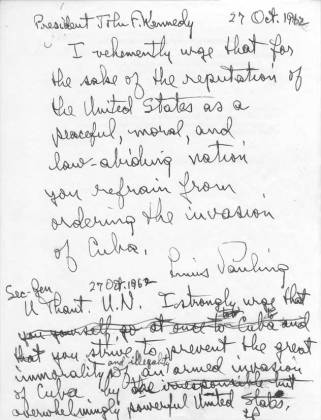 President John F. Kennedy 27 Oct. 1962
I vehemently urge that for
the sake of the reputation of
the United States as a
peaceful, moral, and
law-abiding nation
you refrain from
ordering the invasion
of Cuba.
Linus Pauling
Sec-Gen 27 Oct. 1962
U Thant. U.N. I strongly urge that
you yourself go at once to Cuba and
that you strive to prevent the great
and illegality
immorality of an armed invasion
of Cuba by the irresponsible but
overwhelmingly powerful United States